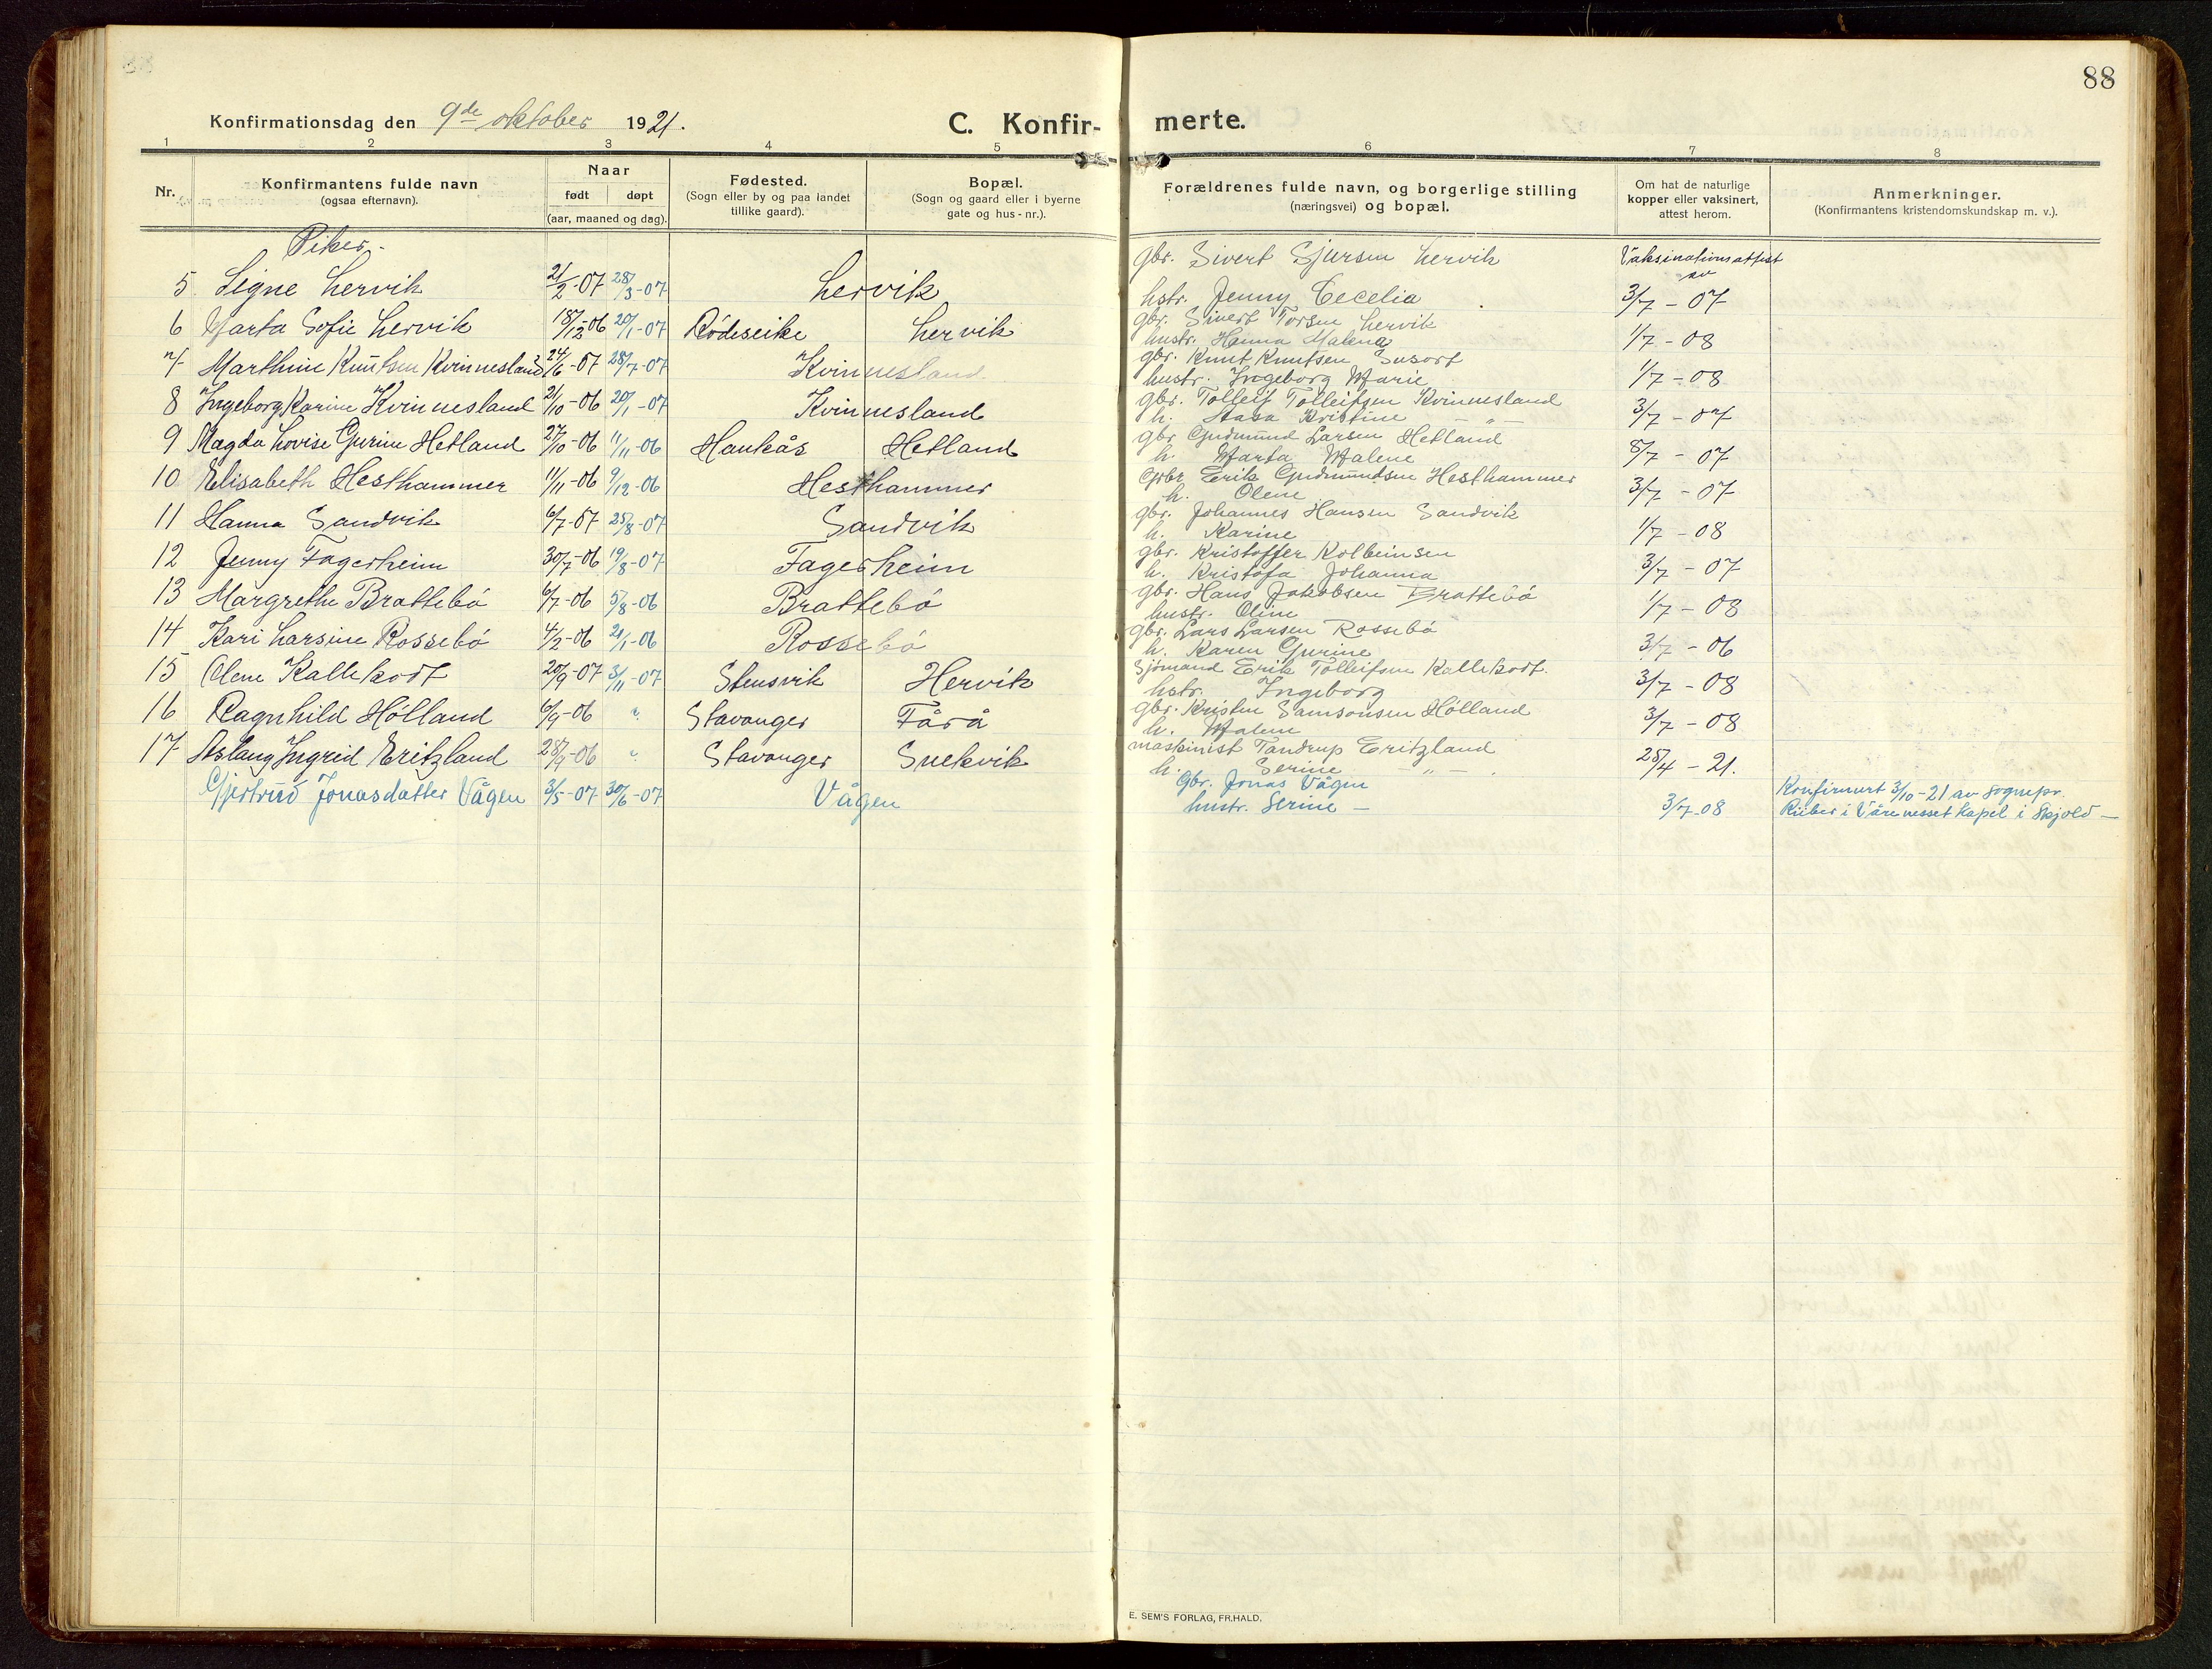 88
Konfirmationsdag den 9de oktober 1921.
C. Konfir- merte.
1 2 3 4 5 6 7 8
Nr.
Konfirmantens fulde navn
(ogsaa efternavn).
Naar
født døpt
(aar, maaned og dag).
Fødested.
(Sogn eller by og paa landet
tillike gaard).
Bopæl.
(Sogn og gaard eller i byerne
gate og hus-nr.).
Forældrenes fulde navn, og borgerlige stilling
(næringsvei) og bopæl.
Om hat de naturlige
kopper eller vaksinert,
attest herom.
Anmerkninger.
(Konfirmantens kristendomskundskap m. v.).
Piker.
Vaksinationsattest
av
5 Signe Hervik 21/2-07 28/3-07 Hervik gbr. Sivert Sjursen Hervik
hstr. Jenny Cecelia 3/7 - 07
6 Marta Sofie Hervik 18/12-06 20/1-07 Rödseike Hervik gbr. Sivert Torsen Hervik
hustr. Hanna Malena 1/7 - 08
7 Marthine Knutsen Kvinnesland 24/6-07 28/7-07 Kvinnesland gbr. Knut Knutsen Susort
hustr. Ingeborg Marie 1/7 - 08
8 Ingeborg Karine Kvinnesland 21/10-06 20/1-07 Kvinnesland gbr. Tolleif Tolleifsen Kvinnesland
h. Stasa Kristine - " - 3/7 - 07
9 Magda Lovise Gurine Hetland 27/10-06 11/11-06 Haukås Hetland gbr. Gudmund Larsen Hetland
h. Marta Malene 8/7 - 07
10 Elisabeth Hesthammer 11/11-06 9/12-06 Hesthammer Gbr. Erik Gudmundsen Hesthammer
h. Olene 3/7 - 07
11 Hanna Sandvik 6/7-07 25/8-07 Sandvik gbr. Johannes Hansen Sandvik
h. Karine 1/7 - 08
12 Jenny Fagerheim 30/7-06 19/8-07 Fagerheim gbr. Kristoffer Kolbeinsen
h. Kristofa Johanna 3/7 - 07
13 Margrethe Brattebö 6/7-06 5/8-06 Brattebö gbr. Hans Jakobsen Brattebö
hustr. Oline 1/7 - 08
14 Kari Larsine Rossebö 4/2-06 21/1-06 Rossebö gbr. Lars Larsen Rossebö
h. Karen Gurine 3/7 - 06
15 Olene Kallekodt 20/9-07 3/11-07 Stensvik Hervik Sjömand Erik Tolleifsen Kallekodt.
hstr. Ingeborg 3/7 - 08
16 Ragnhild Hölland 6/9-06 " Stavanger Fårå gbr. Kristen Samsonsen Hölland
h. Malene 3/7 - 08
17 Aslaug Ingrid Eritzland 28/9-06 " Stavanger Snekvik maskinist Tandrup Eritzland
h. Serine - " - 28/4 - 21.
Gjertrud Jonasdatter Vågen 3/5-07 30/6-07 Vågen Gbr. Jonas Vågen
hustr. Serine - 3/7-08
Konfirmert 3/10-21 av sognepr.
Rüber i Vårenesset kapel i Skjold -
E. SEM'S FORLAG, FR.HALD.